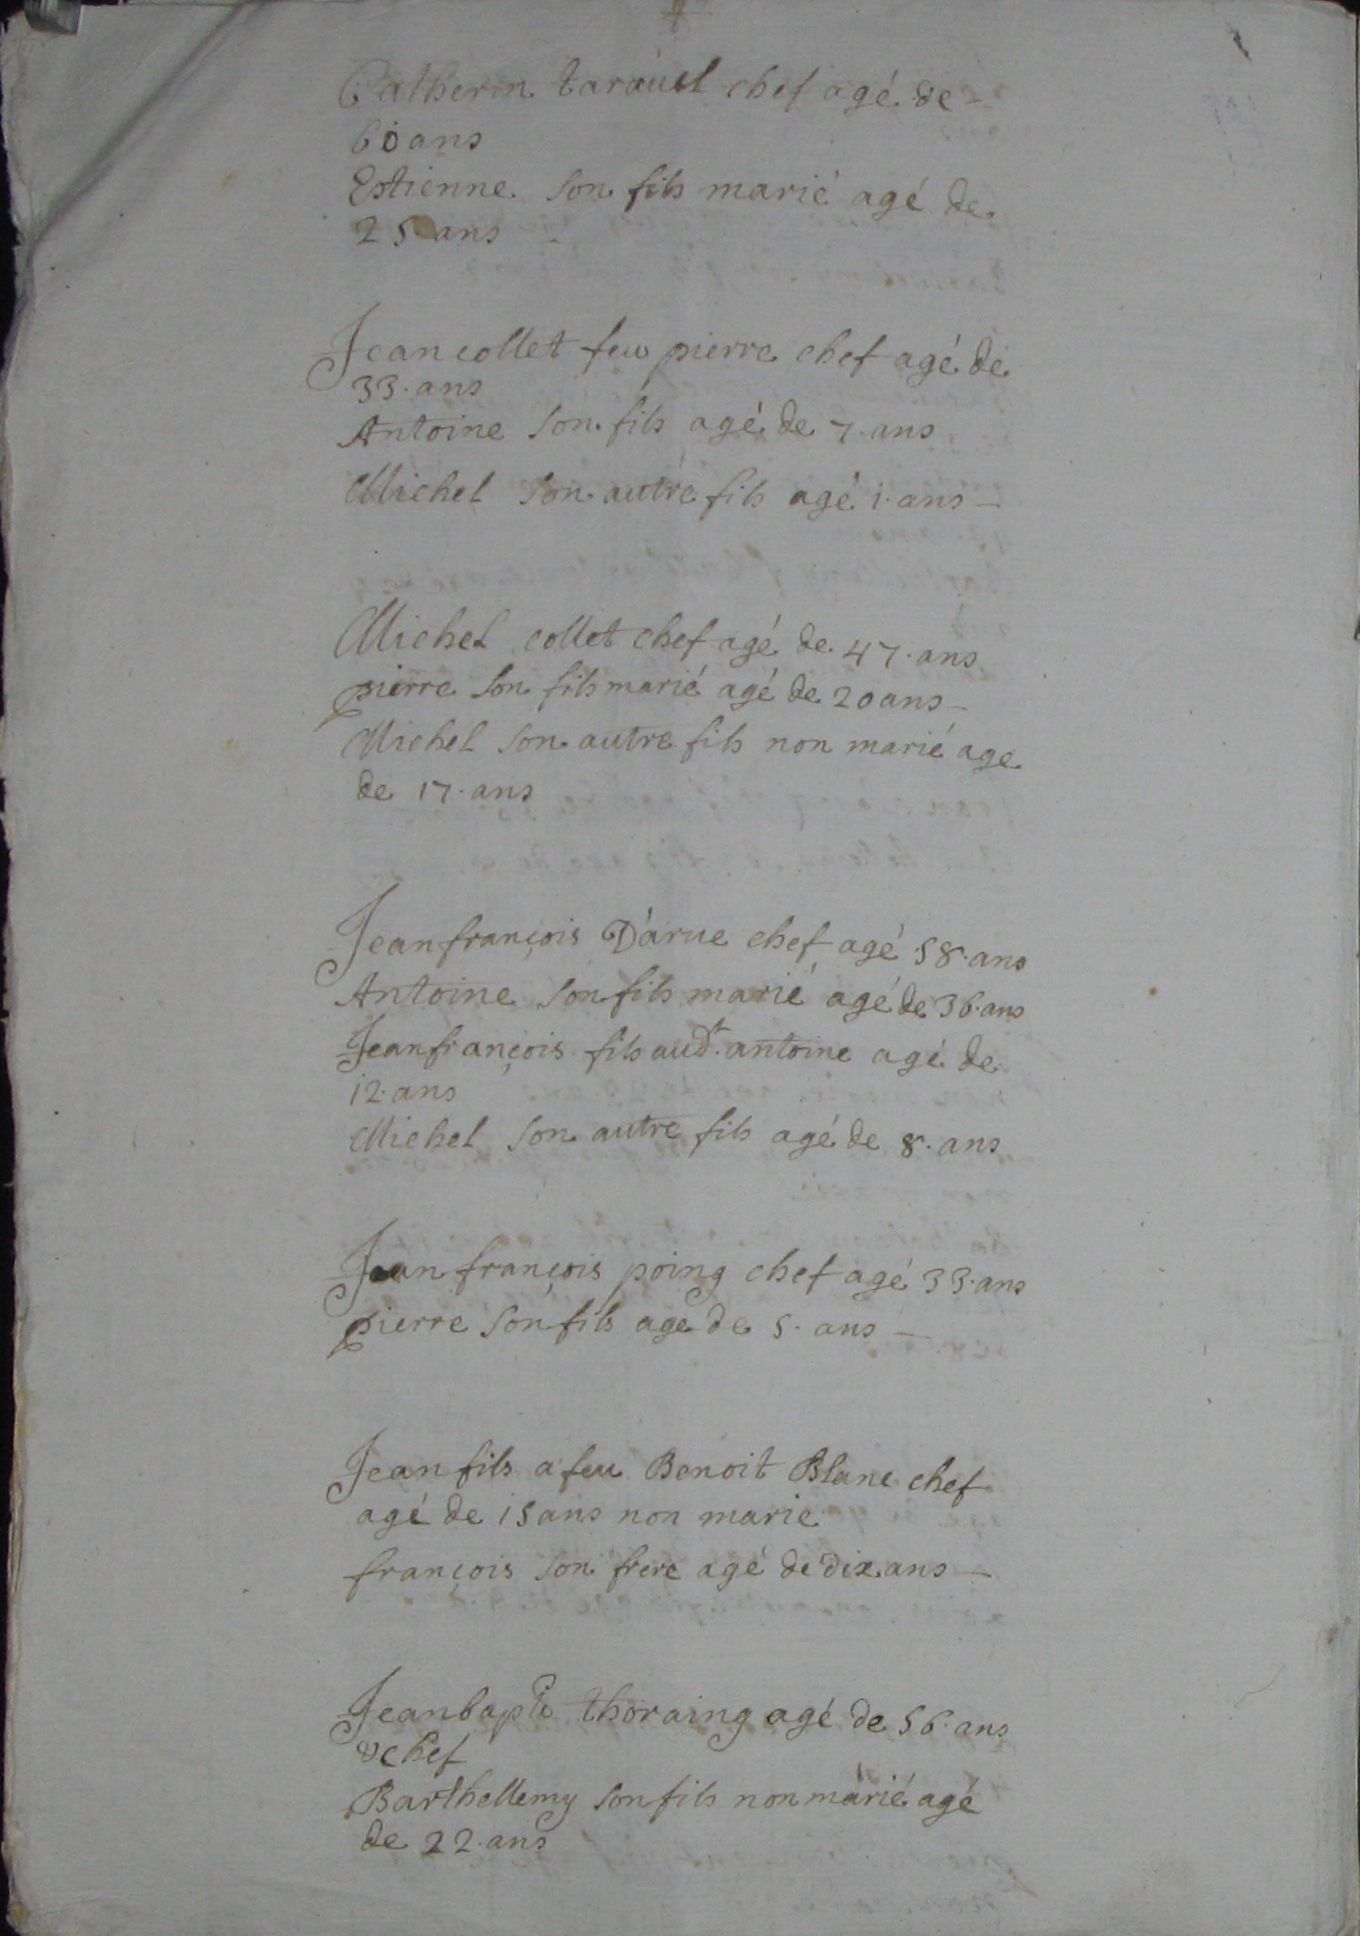 Catherin taravel chef agé de
60 ans
Estienne son fils marié agé de
25 ans
Jean collet feu pierre chef agé de
33. ans
Antoine son fils agé de 7. ans
Michel son autre fils agé 1. ans
Michel collet chef agé de 47. ans
pierre son fils marié agé de 20 ans
Michel son autre fils non marié age
de 17. ans
Jean françois Darue chef agé 58. ans
Antoine son fils marié agé de 36. ans
Jean françois fils aud.t antoine agé de
12. ans
Michel son autre fils agé de 8. ans
Jean françois poing chef agé 33. ans
pierre son fils age de 5. ans
Jean fils a feu Benoit Blanc chef
agé de 15 ans non marie
françois son frere agé de dix ans
Jean bapte thoraing agé de 56. ans
& chef
Barthellemy son fils non marié agé
de 22. ans